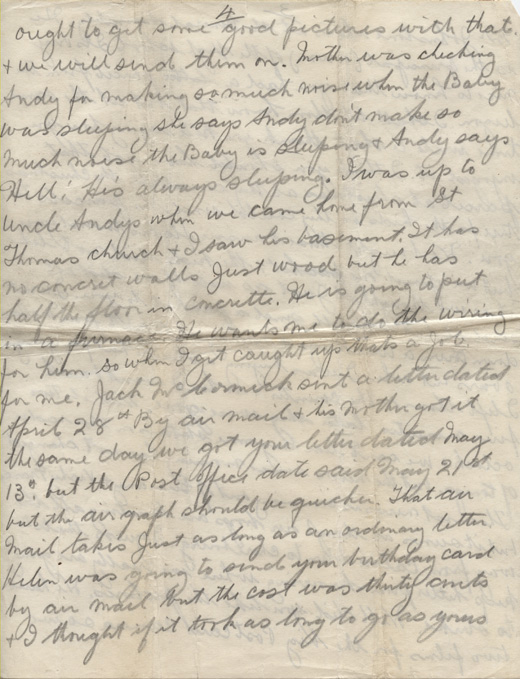 4
ought to get some good pictures with that.
+ we will send them on. Mother was checking
Andy for making so much noise when the Baby
was sleeping she says Andy don't make so
much noise the Baby is sleeping & Andy says
Hell! He's always sleeping. I was up to
Uncle Andys when we came home from St
Thomas church & I saw his basement. It has
no concret walls Just wood but he has
half the floor in concrette. He is going to put
in a furnace He wants me to do the wiring
for him. so when I get caught up thats a job
for me. Jack McCormick sent a letter dated
April 28st By air mail & his Mother got it
the same day we got your letter dated May
13th but the Post office date said May 21st
but the air graph should be quicker. That air
Mail takes Just as long as an ordinary letter
Helen was going to send your birthday card
by air mail but the cost was thirty cents
+ I thought if it took as long to go as yours